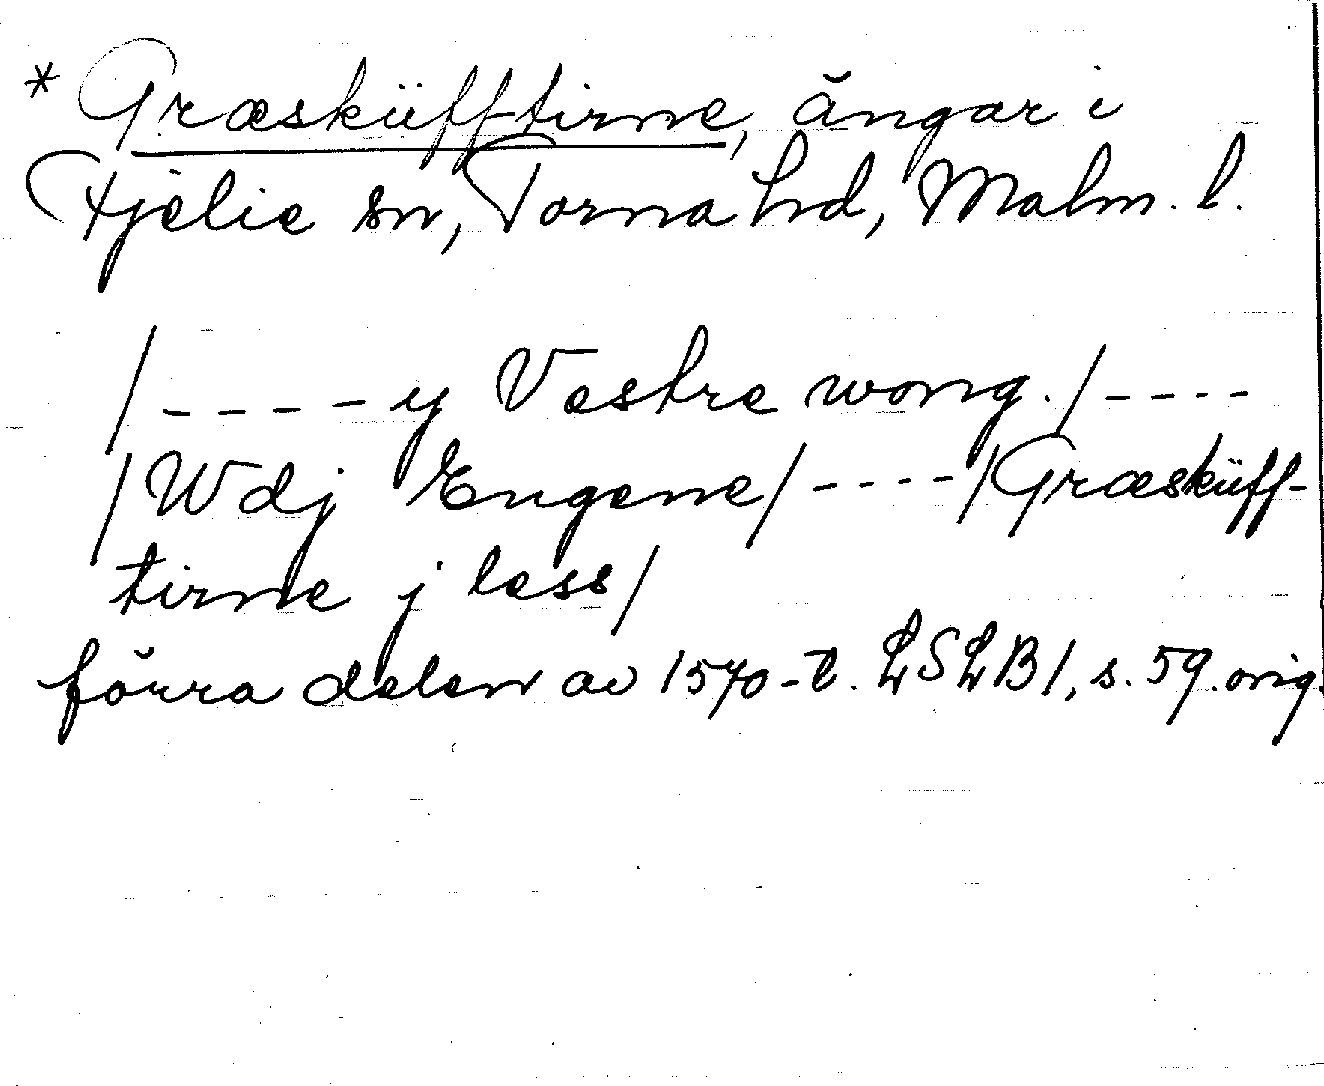 * Græsküfftirne, ängar i
Fjelie sn, Torna hd, Malm. l.
/----y Vestre wong./----
/Wdj Engene/----/Græsküff-
tirne j less/
förra delen av 1570-t. LSLB1, s. 59. orig.